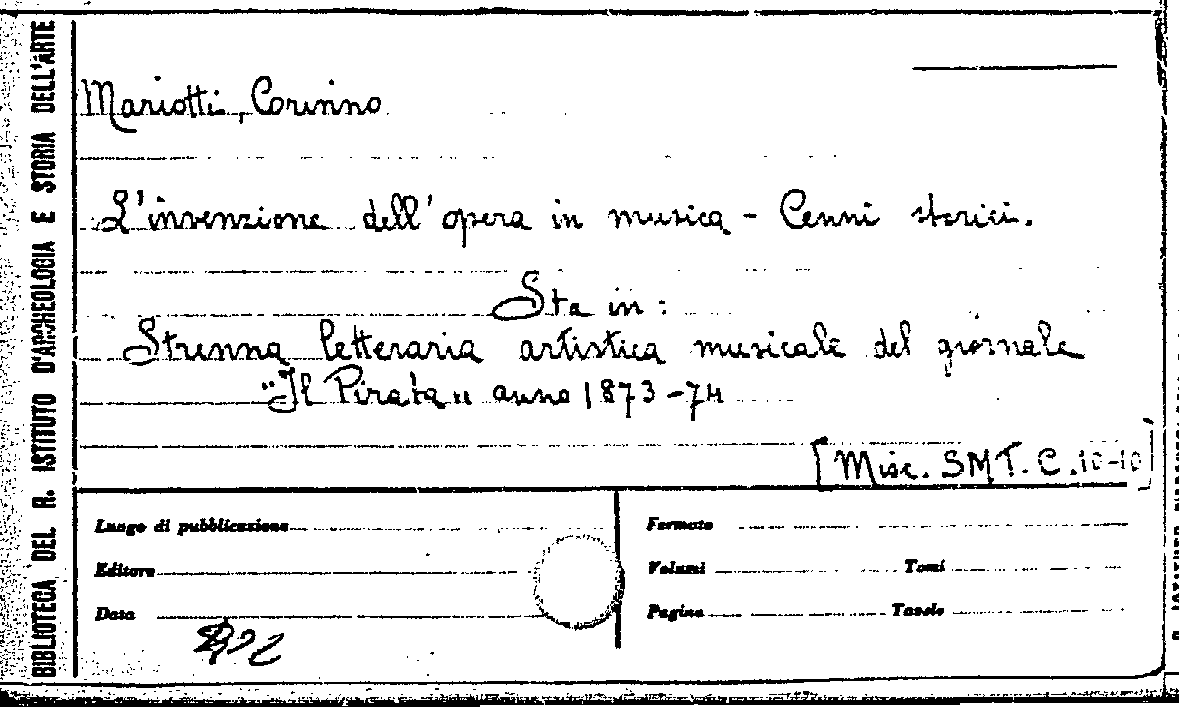 BIBLIOTECA DEL R. ISTITUTO D'ARCHEOLOGIA E STORIA DELL'ARTE
Mariotti, Corinno
L'invenzione dell'opera in musica - Cenni storici.
Sta in:
Strenna letteraria artistica musicale del giornale
"Il Pirata" anno 1873-74
[Misc. SMT. C. 10-10]
Luogo di pubblicazione
Formato
Editore
Volumi
Tomi
Data
Pagine
Tavole